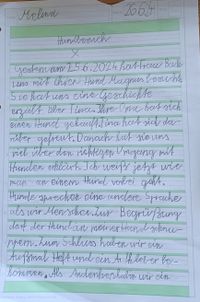 Melina 26.6.14
Hundbesuch
Gestern am 25.6.2014 hat Frau
uns mit ihren Hund Magnus besucht.
Sie hat uns eine Geschichte
erzält über Tina. Ihre Oma hat sich
einen Hund gekauft. Tina hat sich da-
rüber gefreut. Danach hat sie uns
viel über den richtigen Umgang mit
Hunden erklärt. Ich weiß jetzt wie
man an einem Hund vorbei geht.
Hunde sprechen eine andere Sprache
als wir Menschen. Zur Begrüßung
darf der Hund an meiner Hand schnu-
ppern. Zum Schluss haben wir ein
Ausmal Heft und ein Aufkleber be-
kommen. Als Andenken habe wir ein